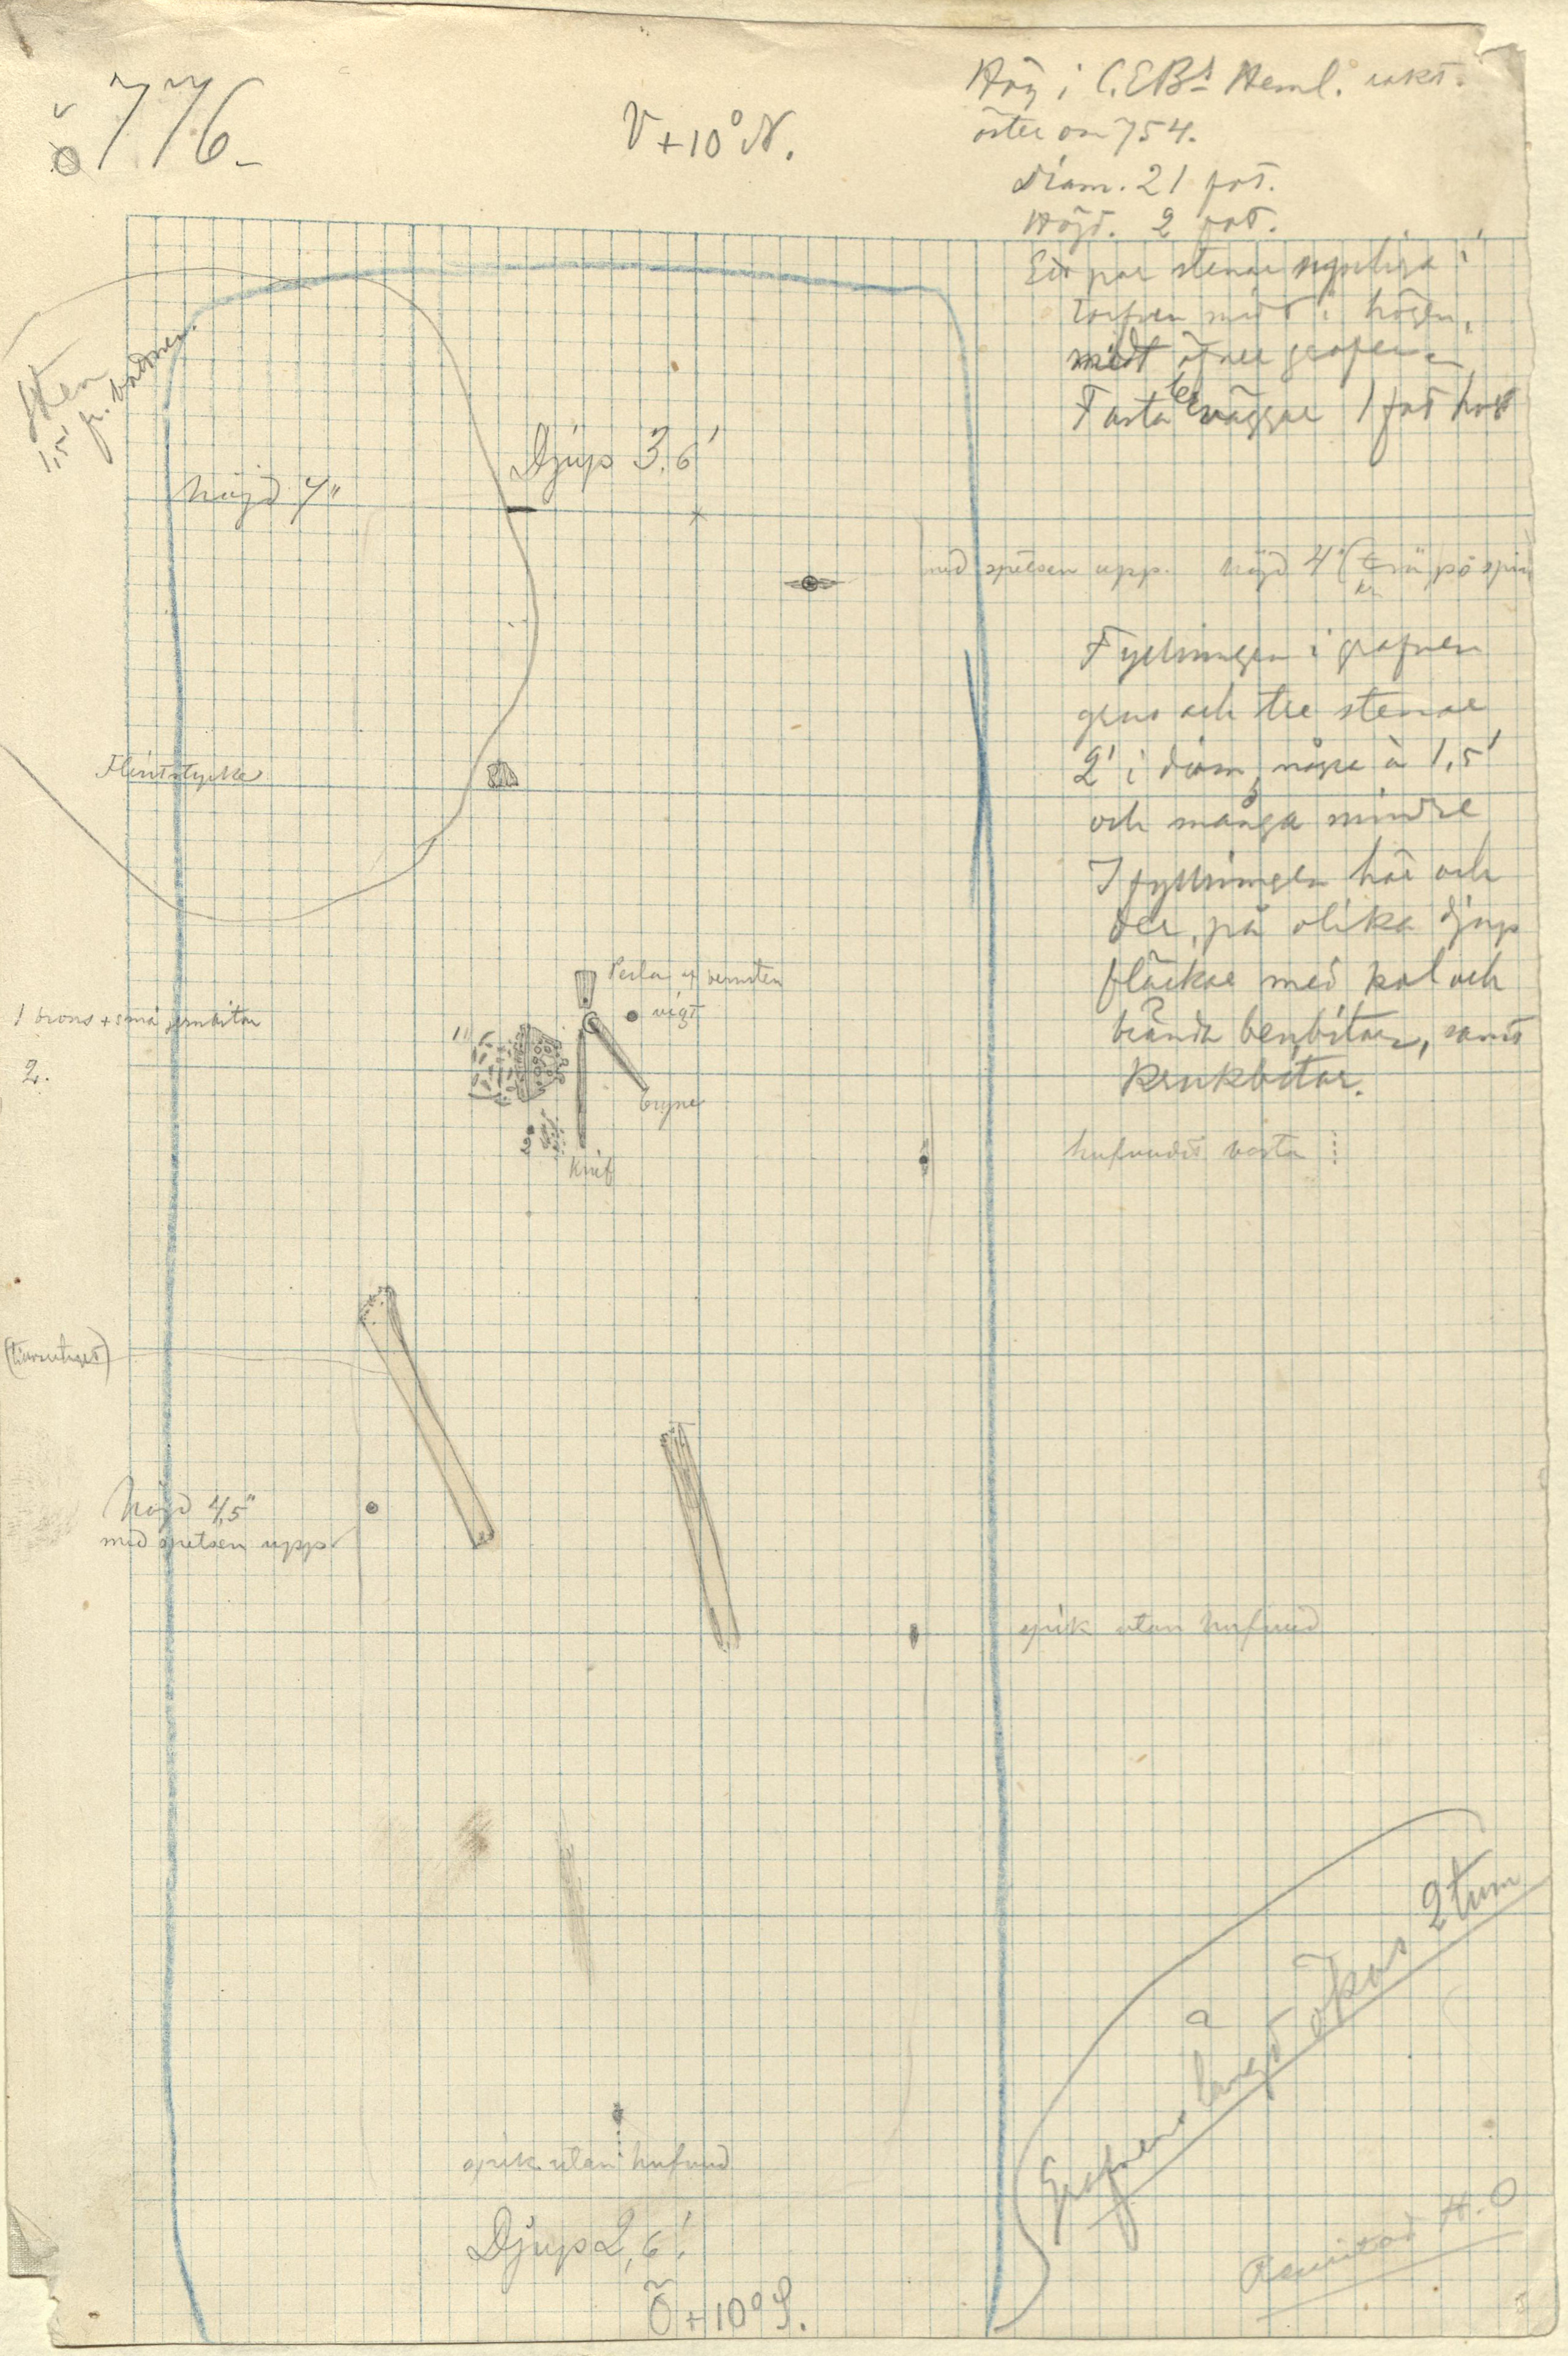 ö 776.
V + 10° N.
Hög i C.E.Bs Heml. rakt
öster om 754.
diam. 21 fot.
Höjd. 2 fot.
Ett par stenar synliga i
torfven midt i högen,
midt öfver grafven
Fasta lerväggar 1 fot
Sten
1,5' fr. bottnen.
höjd 7"
Djup 3,6'
med spetsen upp. höjd 4"
Fyllningen i grafven
grus och tre stenar
2' i diam, några à 1,5'
och många mindre
I fyllningen här och
der, på olika djup
fläckar med kol och
brända benbitar, samt
krukbitar.
Flintstycke
Perla af bernsten
vigt
1 brons + små jernbitar
2.
1"
bryne
2"
knif
hufvudet västa
höjd 4,5"
med spetsen upp
spik utan hufvud
spik utan hufvud
Djup 2,6'.
Ö + 10° S.
Grafvens längd ökas 2 tum
Renritad H.O